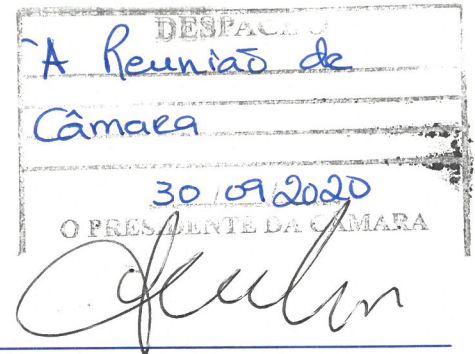 DESPACHO
À Reunião de
Câmara
30 09 2020
O PRESIDENTE DA CÂMARA